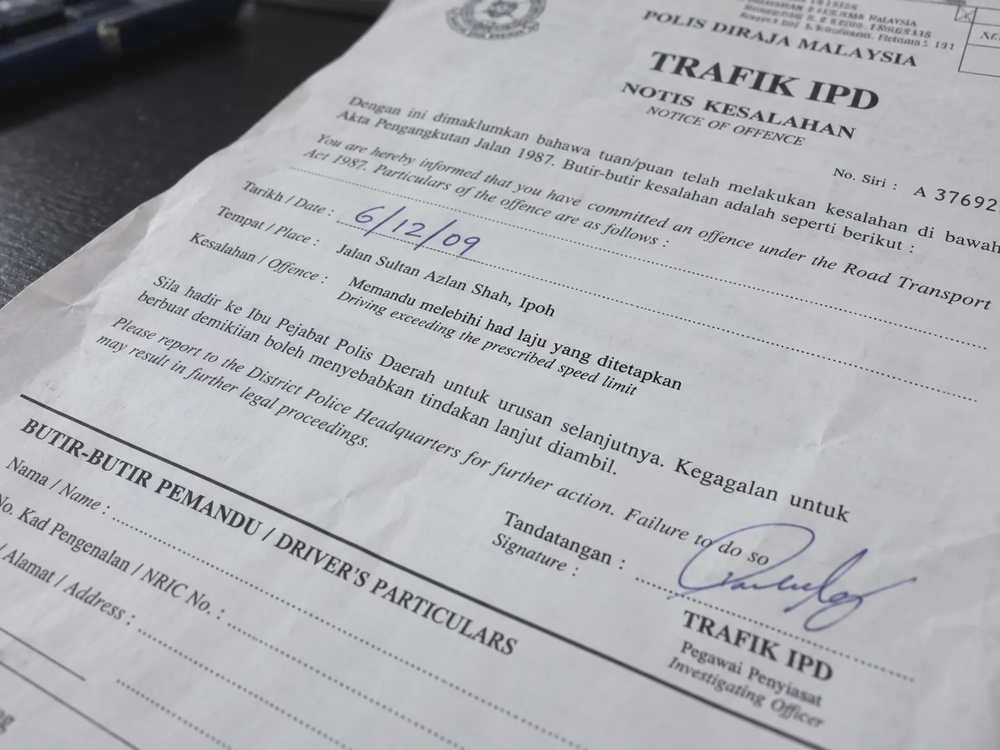 POLIS DIRAJA MALAYSIA
TRAFIK IPD
NOTIS KESALAHAN
NOTICE OF OFFENCE
No. Siri : A 37692
Dengan ini dimaklumkan bahawa tuan/puan telah melakukan kesalahan di bawah
Akta Pengangkutan Jalan 1987. Butir-butir kesalahan adalah seperti berikut :
You are hereby informed that you have committed an offence under the Road Transport
Act 1987. Particulars of the offence are as follows :
Tarikh / Date : 6/12/09
Tempat / Place : Jalan Sultan Azlan Shah, Ipoh
Kesalahan / Offence : Memandu melebihi had laju yang ditetapkan
Driving exceeding the prescribed speed limit
Sila hadir ke Ibu Pejabat Polis Daerah untuk urusan selanjutnya. Kegagalan untuk
berbuat demikiian boleh menyebabkan tindakan lanjut diambil.
Please report to the District Police Headquarters for further action. Failure to do so
may result in further legal proceedings.
Tandatangan :
Signature :
TRAFIK IPD
Pegawai Penyiasat
Investigating Officer
BUTIR-BUTIR PEMANDU / DRIVER'S PARTICULARS
Nama / Name :
No. Kad Pengenalan / NRIC No. :
/ Alamat / Address :